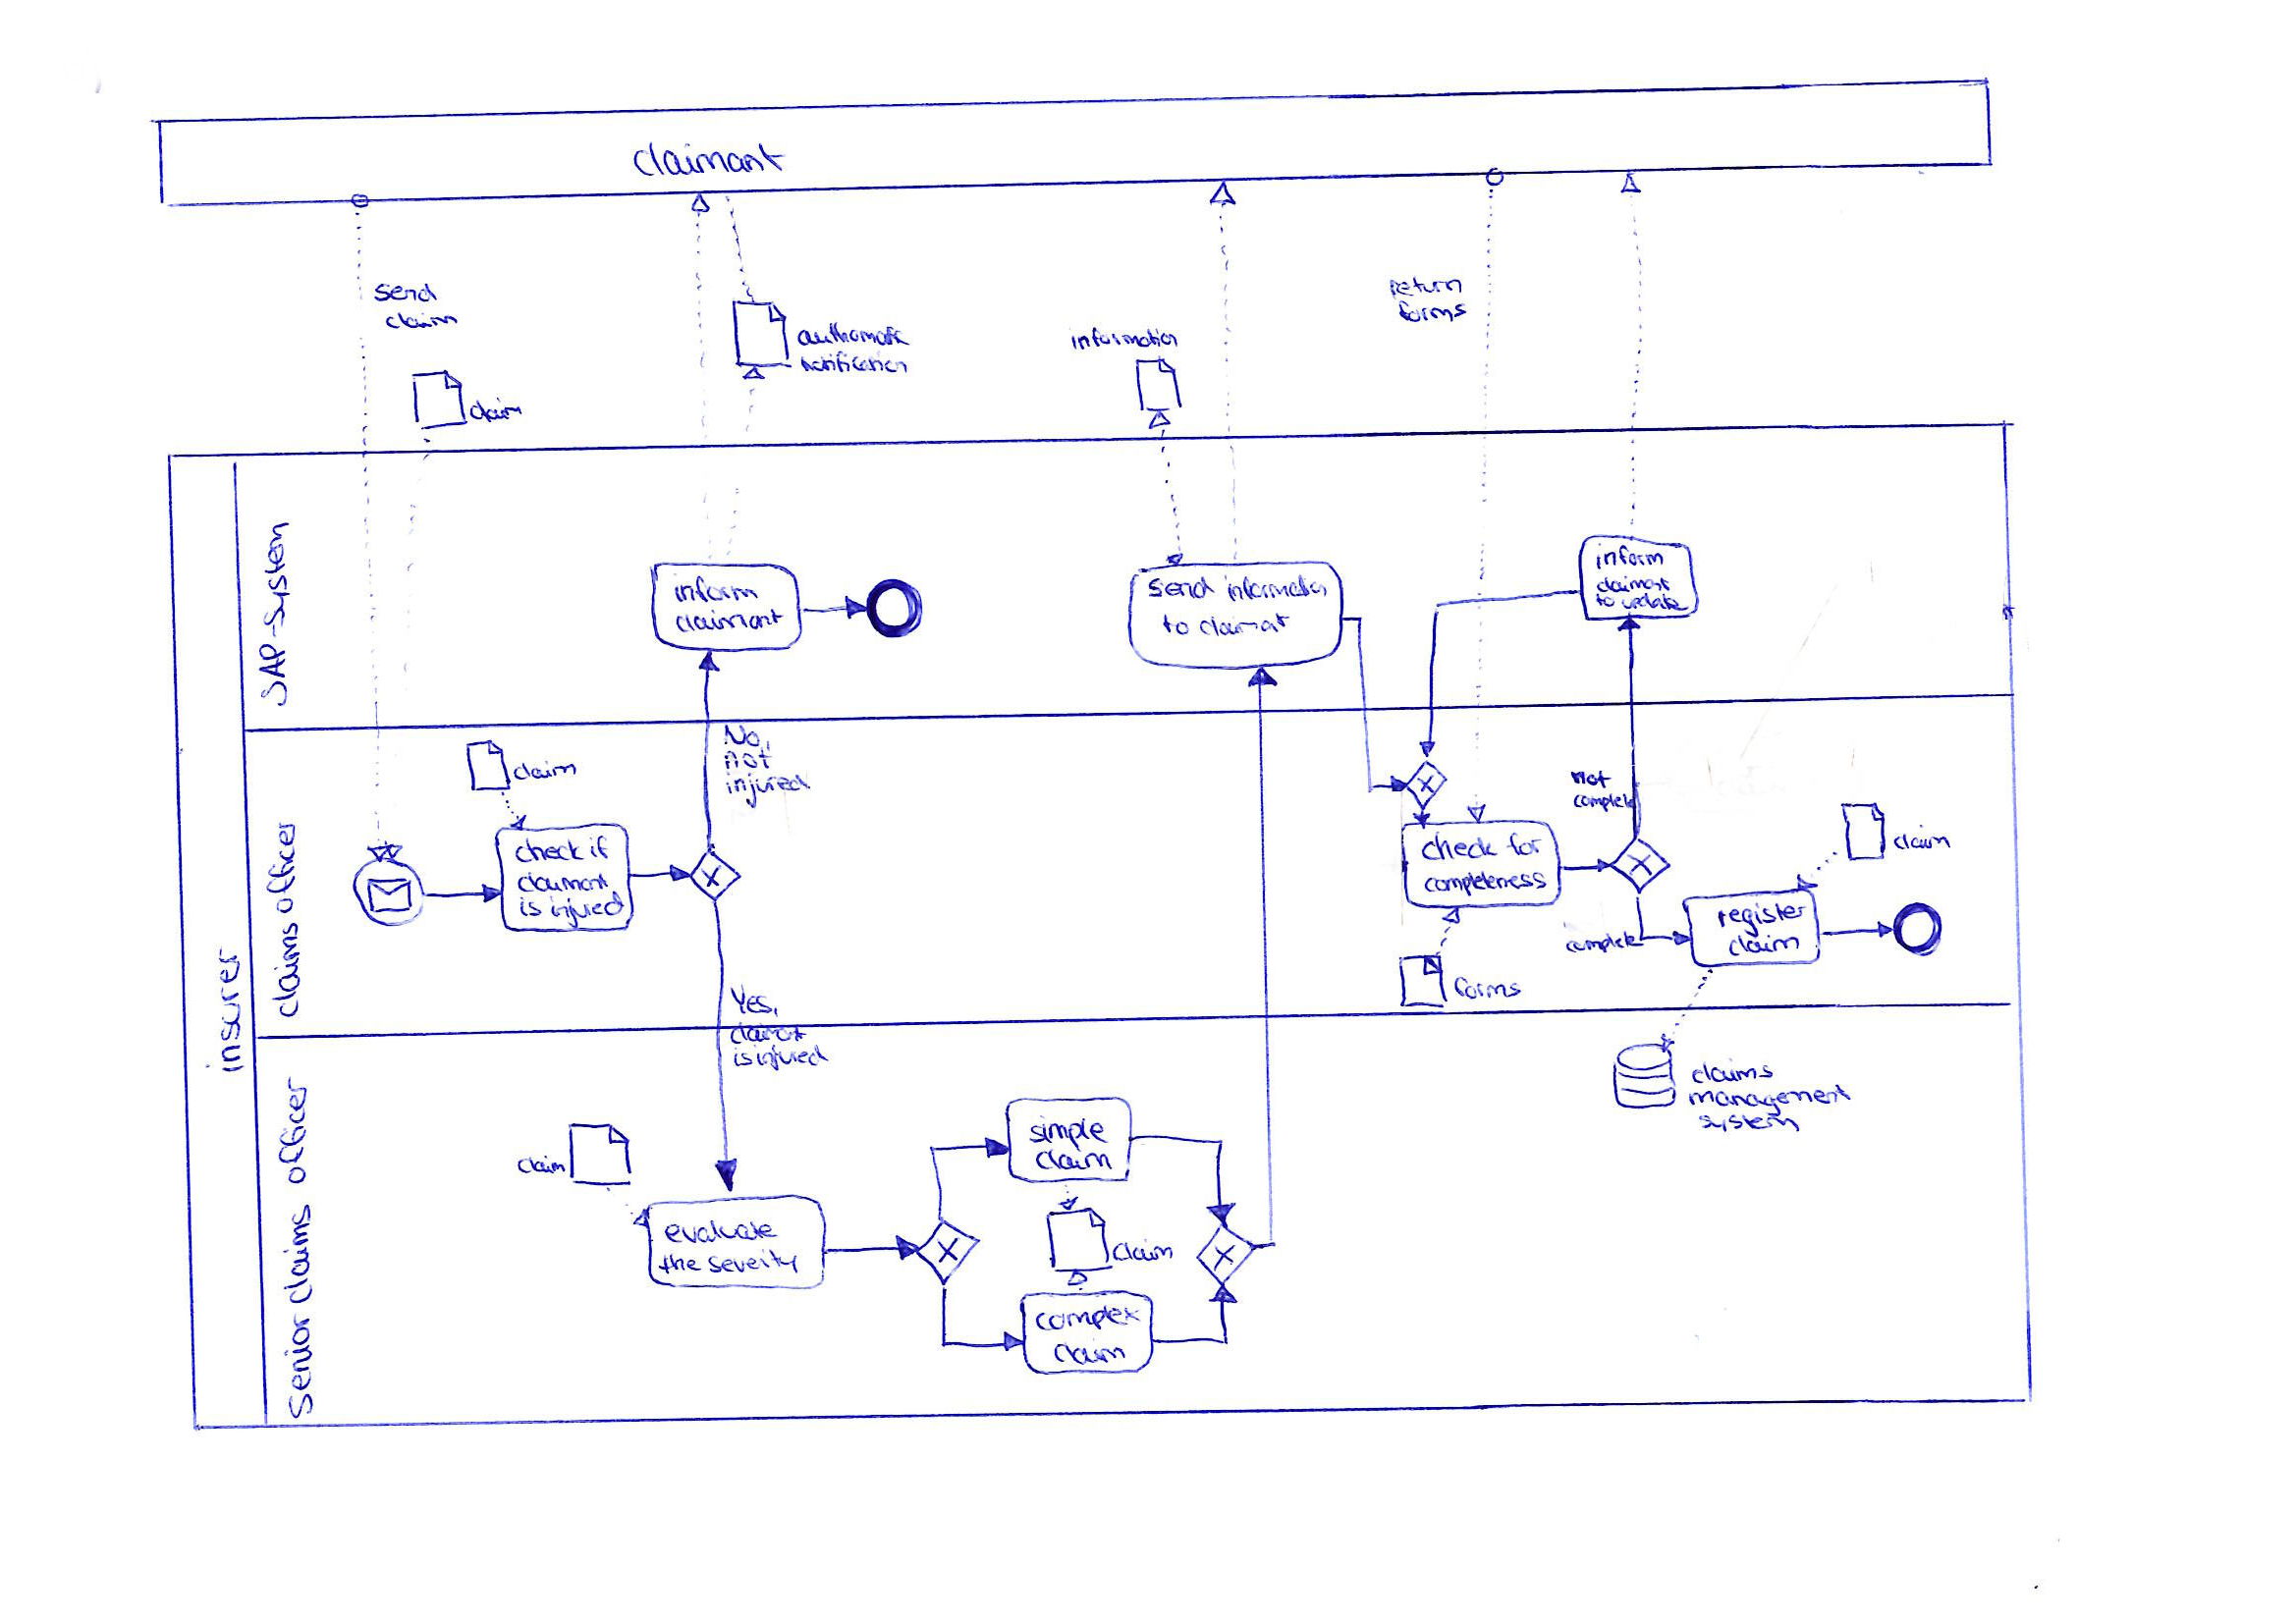 claimant
send
claim
claim
authomatic
notification
information
return
forms
insurer
SAP-System
inform
claimant
send information
to claimant
inform
claimant
to update
claims officer
claim
check if
claimant
is injured
No,
not
injured
Yes,
claimant
is injured
check for
completeness
forms
not
complete
complete
register
claim
claim
claims
management
system
Senior claims officer
claim
evaluate
the severity
simple
claim
claim
complex
claim